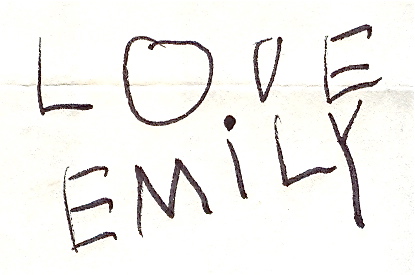 LOVE
EMiLY